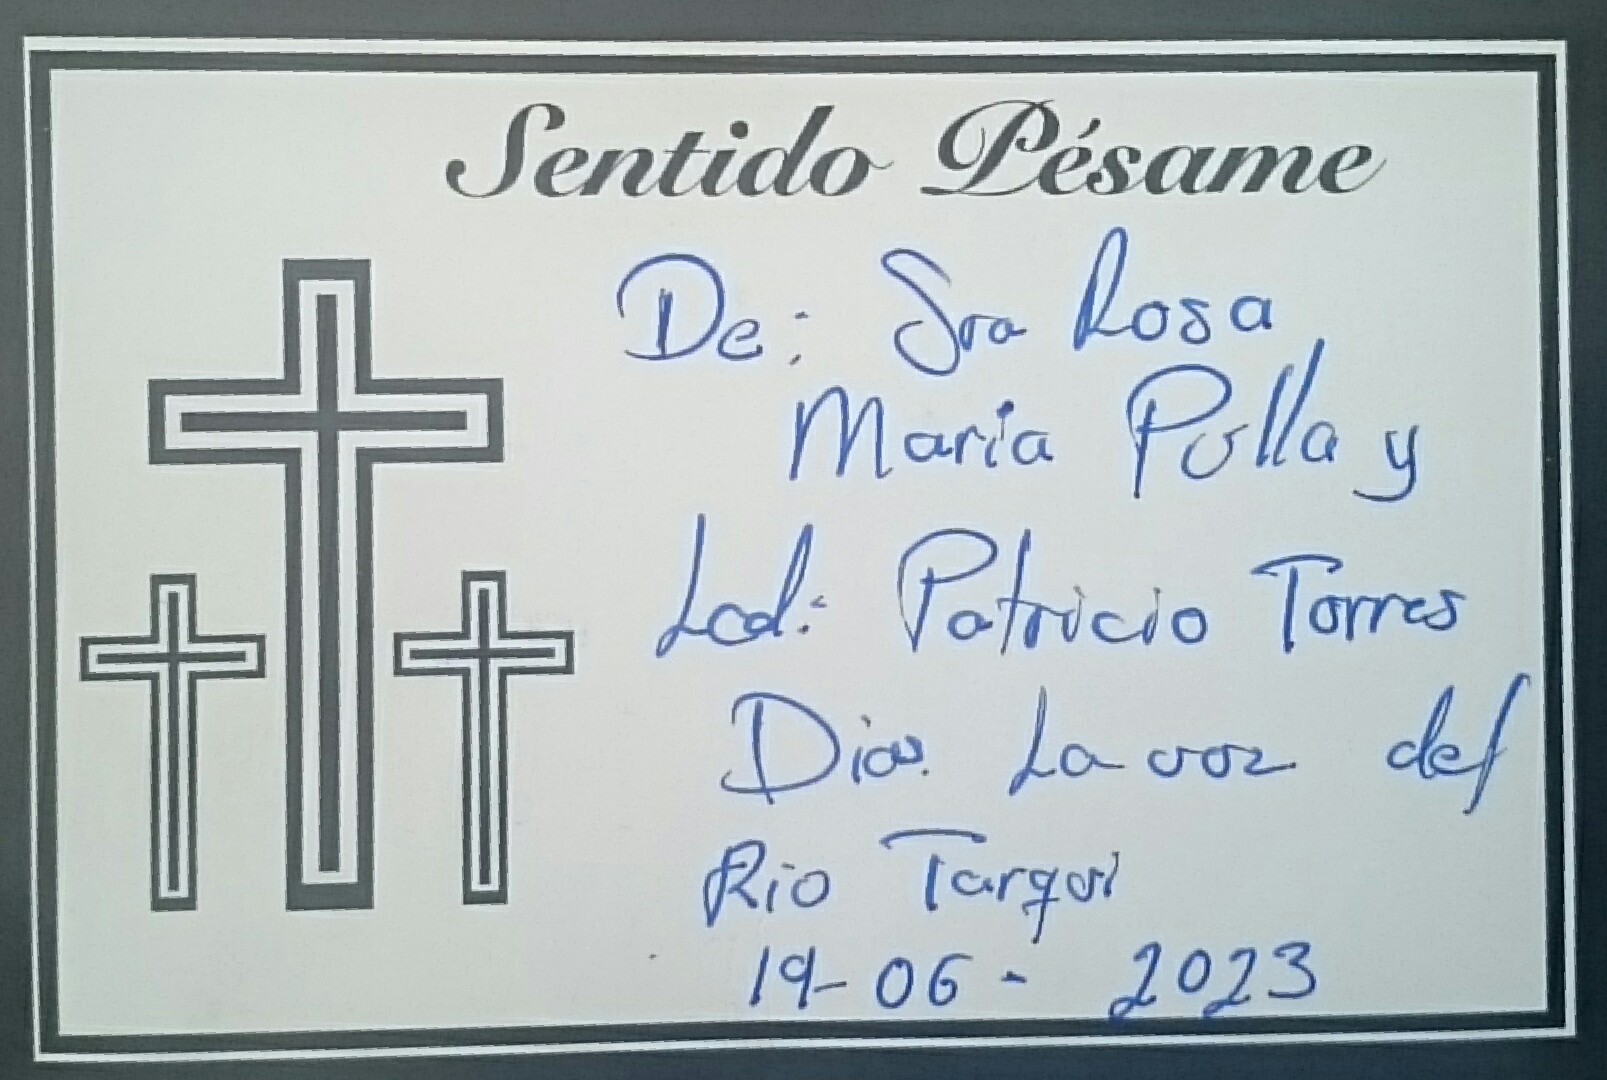 Sentido Pésame
De: Sra Rosa
Maria Pulla y
Lcd: Patricio Torres
La voz del
Rio Tarqui
19-06-2023